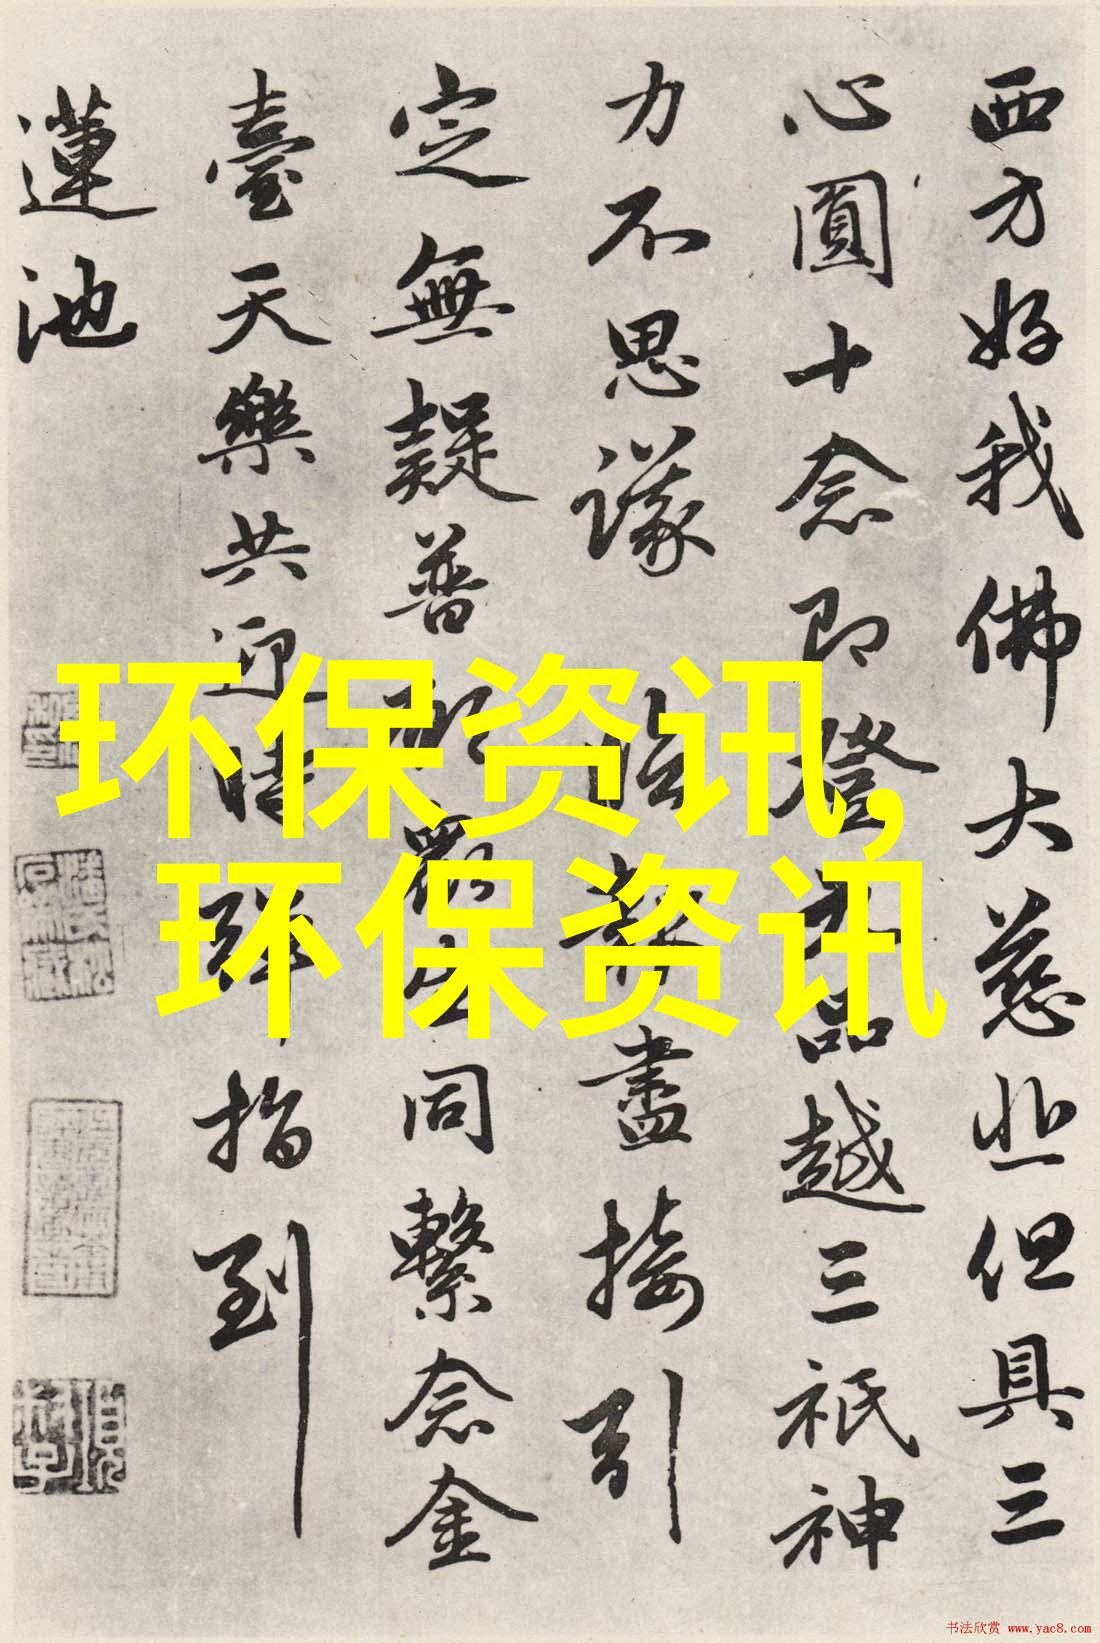 西方好我佛大慈悲但具三
心圓十念即登九品越三祇神
力不思議臨報盡接引
定無疑普勸衆生同繫念金
臺天樂共迎時彈指到
蓮池
环保资讯,
环保资讯
书法欣赏 www.yac8.com